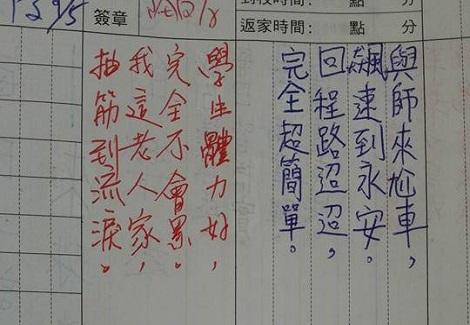 簽章
到校時間: 點 分
返家時間: 點 分
與師來尬車,
飆速到永安。
回程路迢迢,
完全超簡單。
學生體力好,
完全不會累。
我這老人家,
抽筋到流淚。